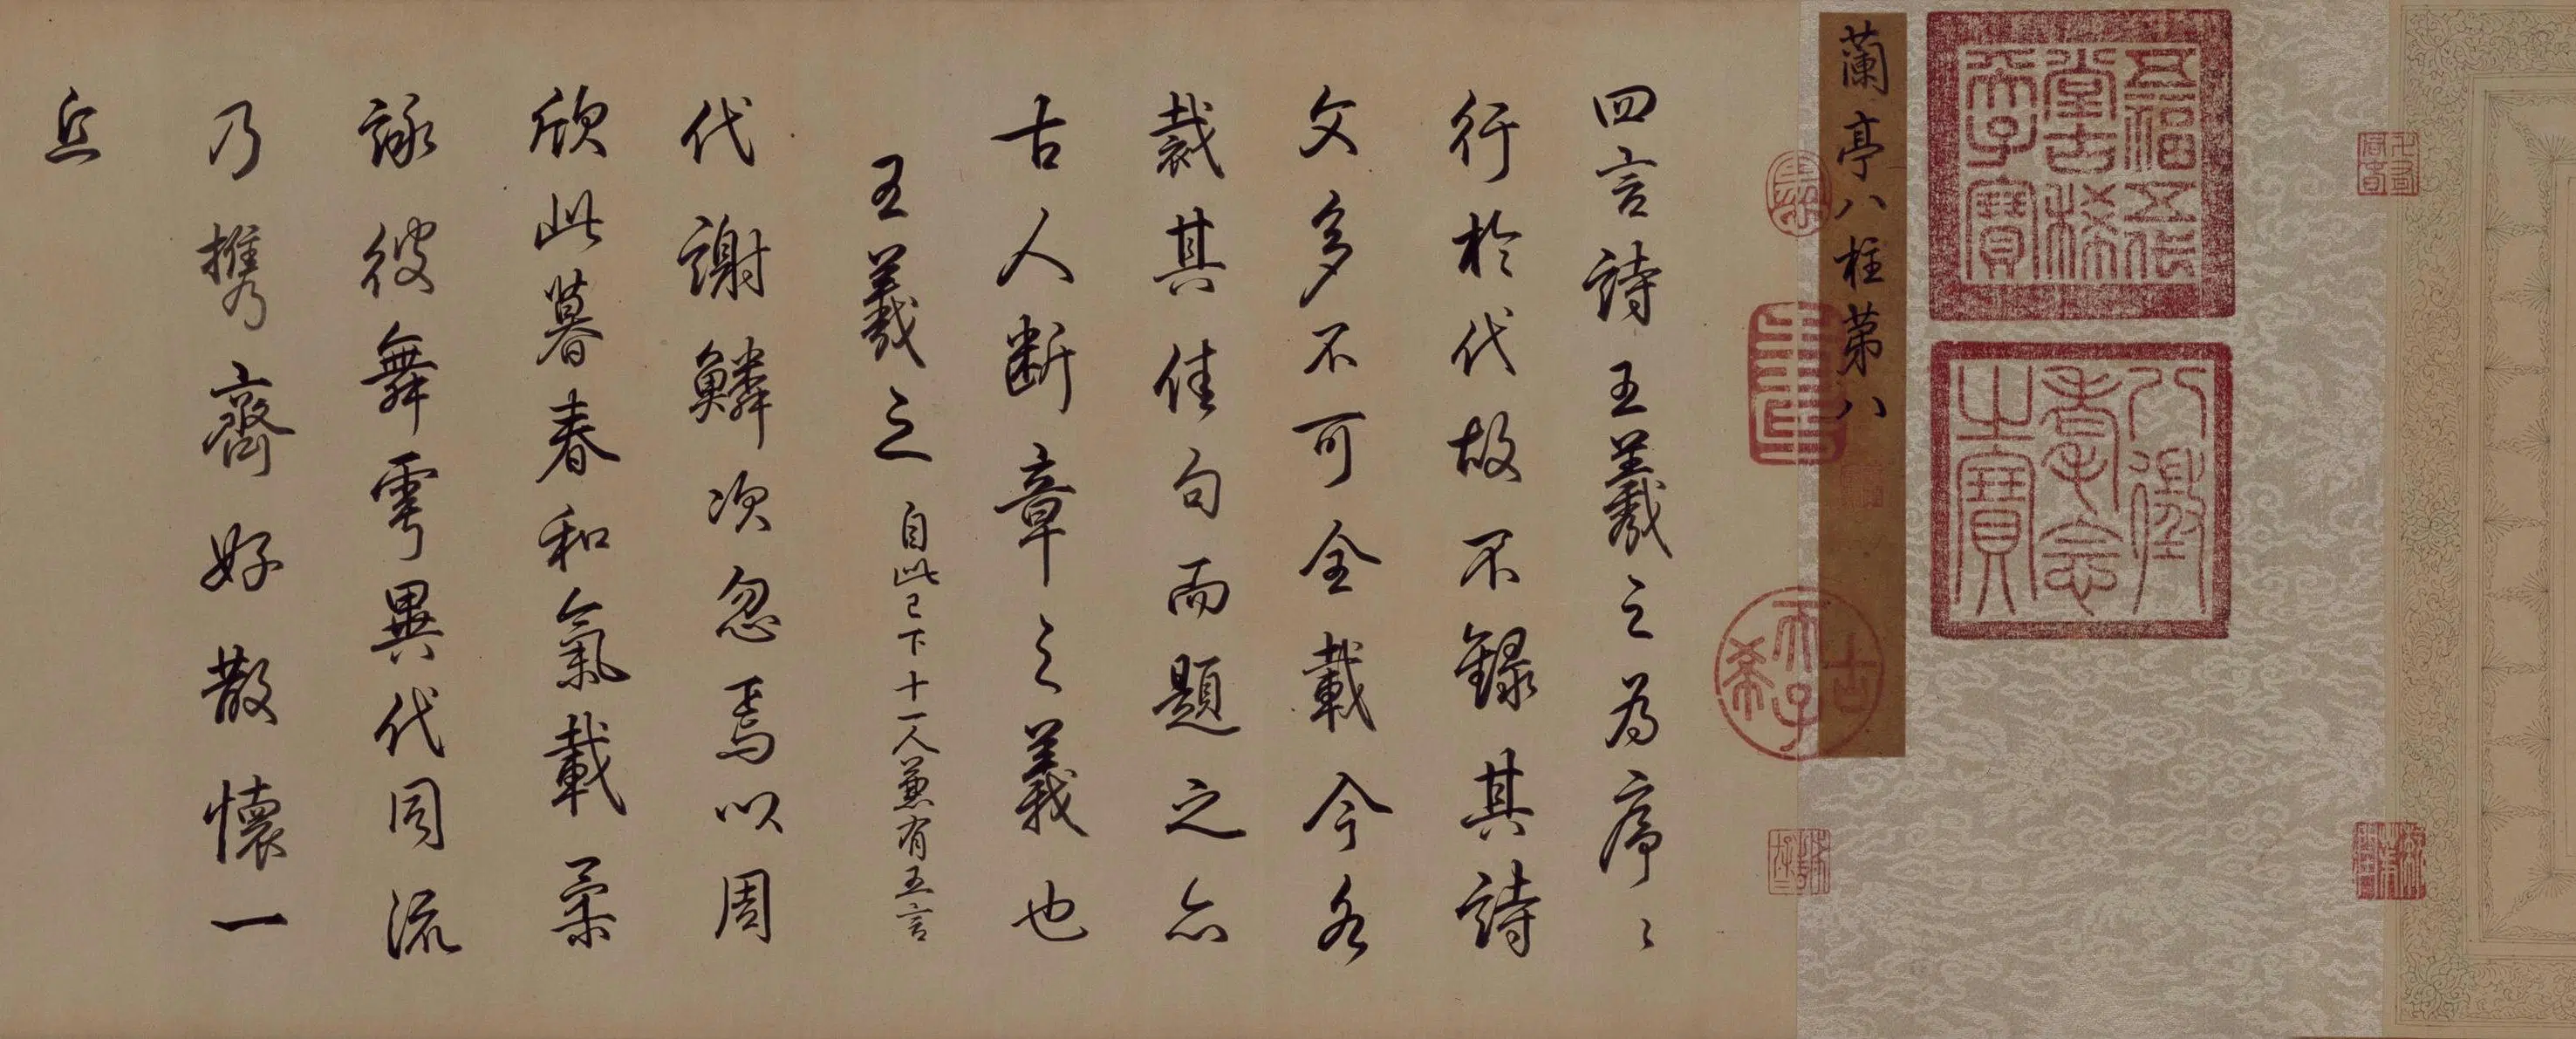 五福五代
堂古稀
天子寶
八徵
耄念
之寶
蘭亭八柱第八
古希
天子
四言詩王羲之為序〻
行於代故不錄其詩
文多不可全載今各
裁其佳句而題之亦
古人斷章之義也
王羲之 自此已下十一人兼有五言
代謝鱗次忽焉以周
欣此暮春和氣載柔
詠彼舞雩異代同流
乃攜齊好散懷一
丘